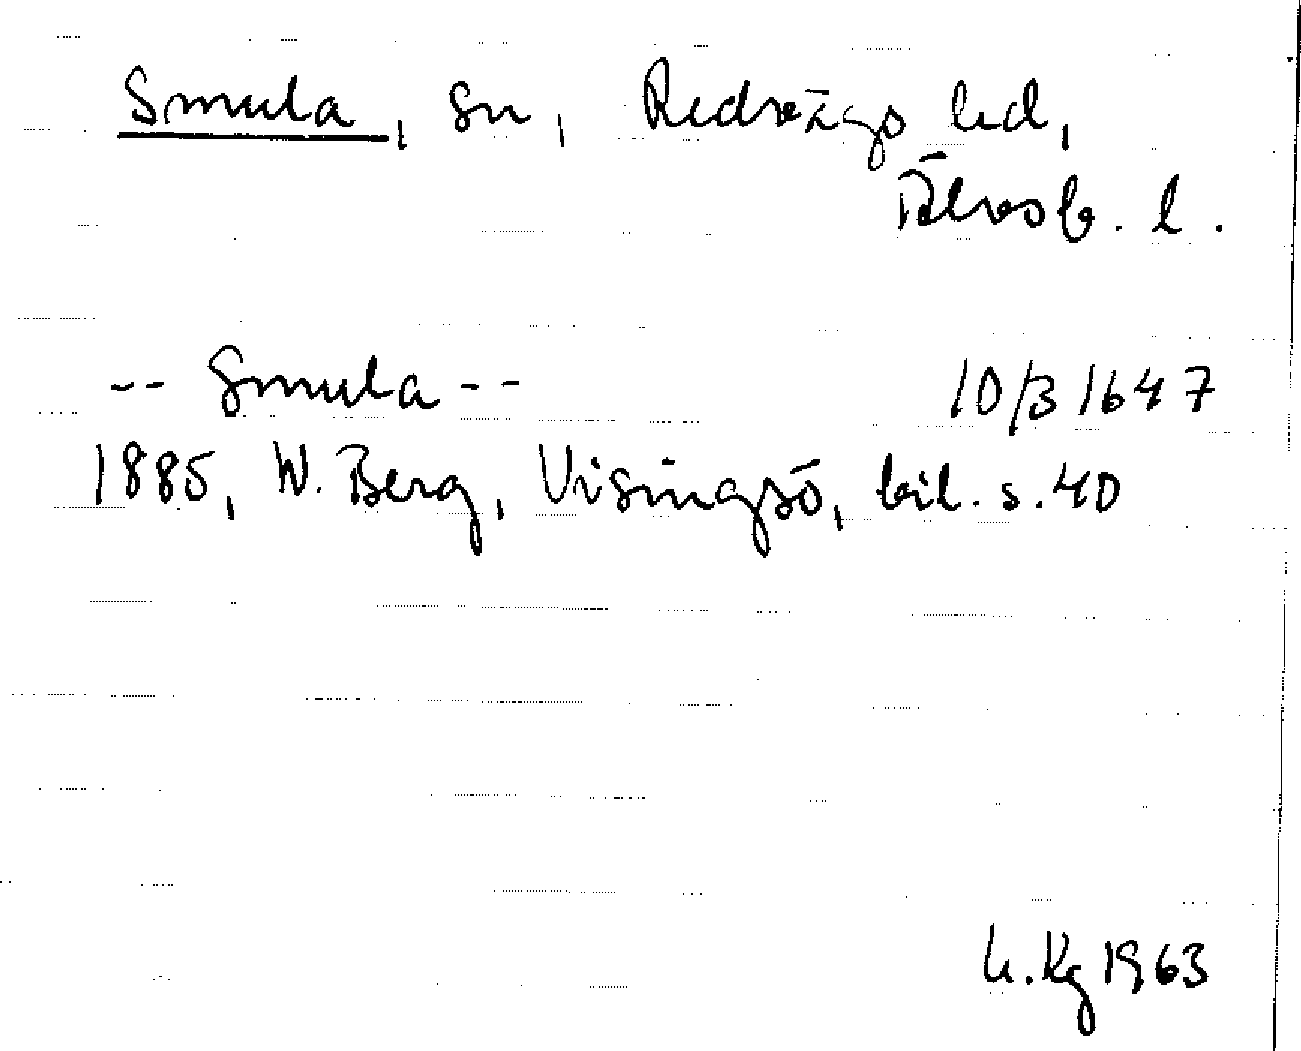 Smula, sn, Redvägs hd,
Älvsb. l.
-- Smula -- 10/3 1647
1885, W. Berg, Visingsö, bil. s. 40
h. Kg 1963